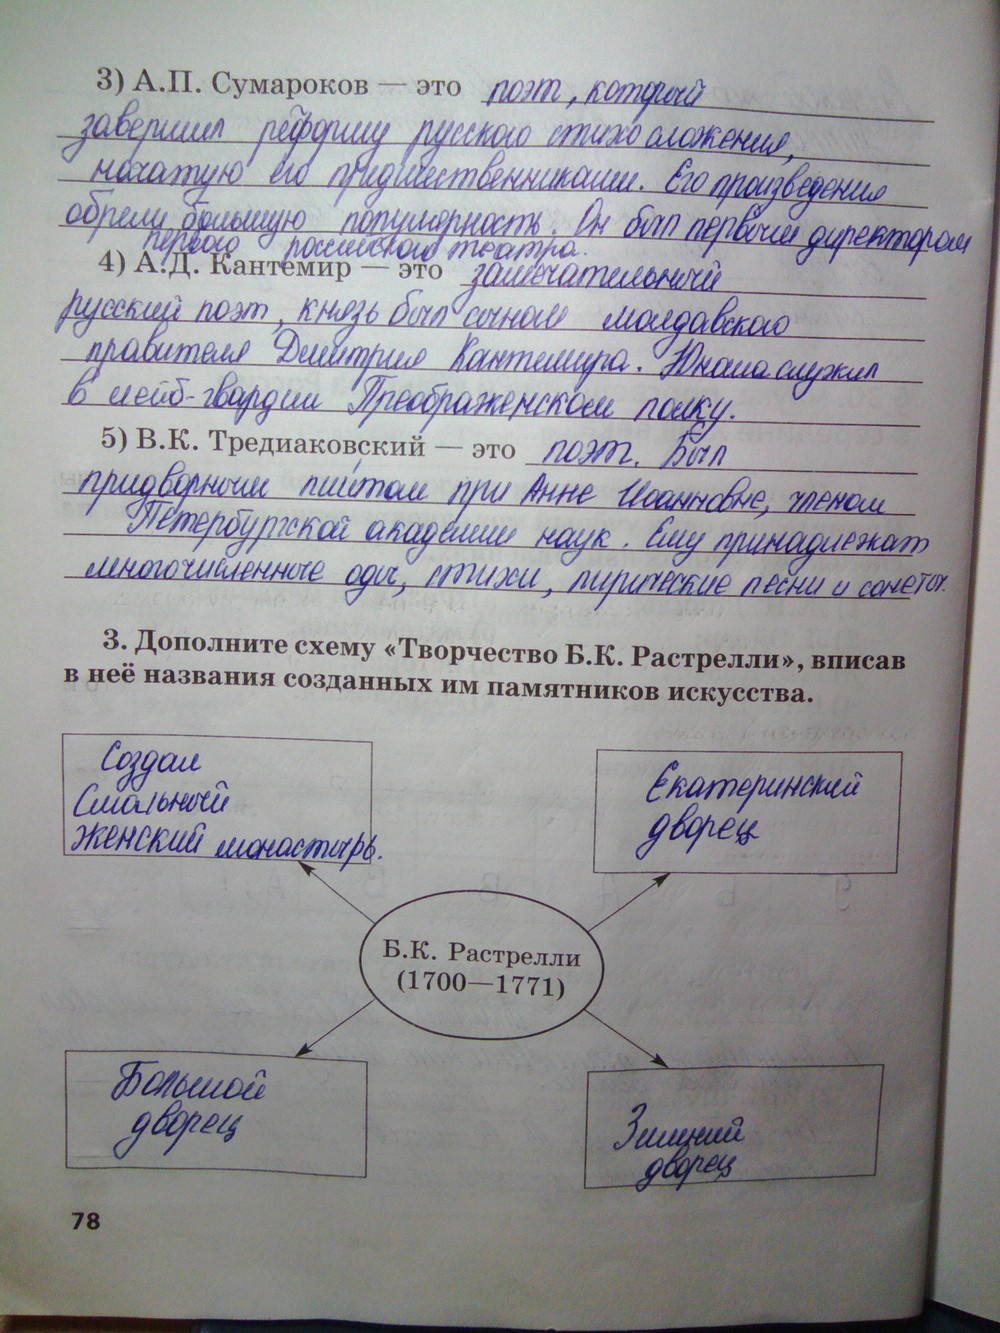 3) А.П. Сумароков — это поэт, который
завершил реформу русского стихосложения,
начатую его предшественниками. Его произведения
обрели большую популярность. Он был первым директором
первого российского театра.
4) А.Д. Кантемир — это замечательный
русский поэт, князь был сыном молдавского
правителя Дмитрия Кантемира. Юноша служил
в лейб-гвардии Преображенском полку.
5) В.К. Тредиаковский — это поэт. Был
придворным пиитом при Анне Иоанновне, членом
Петербургской академии наук. Ему принадлежат
многочисленные оды, стихи, лирические песни и сонеты.
3. Дополните схему «Творчество Б.К. Растрелли», вписав
в неё названия созданных им памятников искусства.
Создал
Смольный
женский монастырь.
Екатеринский
дворец
Б.К. Растрелли
(1700—1771)
Большой
дворец
Зимний
дворец
78